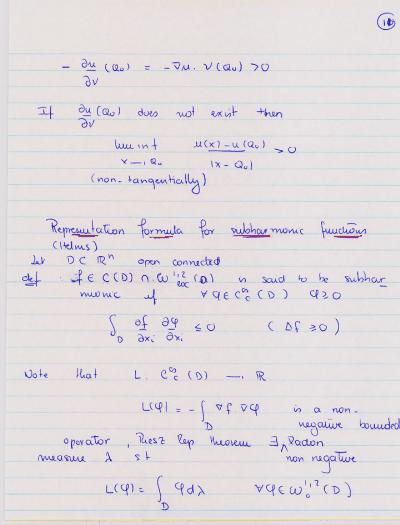 - ∂u/∂ν (Q₀) = -∇u. ν(Q₀) > 0
If ∂u/∂ν (Q₀) does not exist then
lim inf x→Q₀ u(x) - u(Q₀) / |x - Q₀| > 0
(non-tangentially)
Representation formula for subharmonic functions
(Helms)
Let D ⊂ ℝⁿ open connected
def : f ∈ C(D) ∩ W^{1,2}_{loc}(D) is said to be subhar
monic if ∀φ ∈ C_c^∞(D) φ ≥ 0
∫_D ∂f/∂x_i ∂φ/∂x_i ≤ 0 (Δf ≥ 0)
Note that L. C_c^∞(D) → ℝ
L(φ) = -∫_D ∇f ∇φ is a non-
negative bounded
operator, Riesz Rep theorem ∃ Radon
measure λ st non negative
L(φ) = ∫_D φdλ ∀φ ∈ W_0^{1,2}(D)